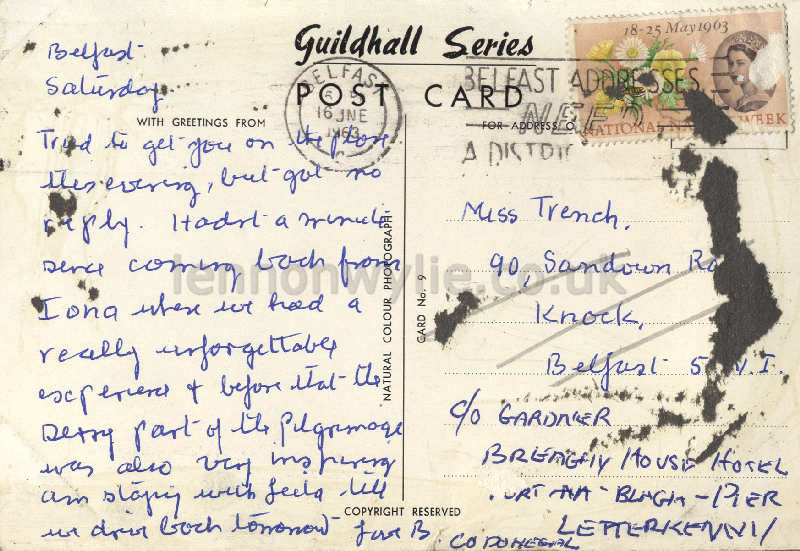 Guildhall Series
POST CARD
WITH GREETINGS FROM
FOR ADDRESS O
BELFAST
16 JNE
1963
BELFAST ADDRESSES
NEED
A DISTRI
18-25 May 1963
NATIONAL NA WEEK
Belfast
Saturday.
Tried to get you on the phone
this evening, but got no
reply. Hadnt a minute
since coming back from
Iona where we had a
really unforgettable
experience & before that the
Derry part of the Pilgrimage
was also very inspiring
am staying with till
we drive back tomorrow Love B.
"NATURAL COLOUR PHOTOGRAPH"
CARD No. 9
COPYRIGHT RESERVED
Miss Trench,
90, Sandown Ro
Knock,
Belfast 5 N.I.
c/o GARDNER
HOUSE HOTEL
PIER
LETTERKENNY
CO DONEGAL
lennonwylie.co.uk